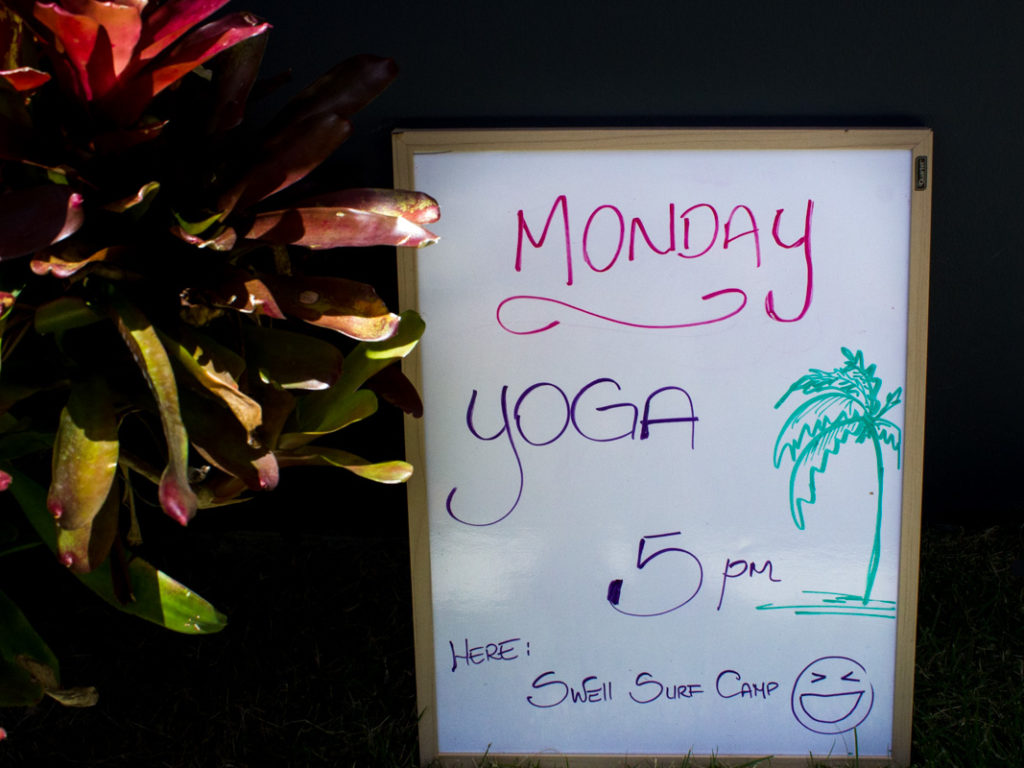 MONDAY
YOGA
5 pm
HERE:
SWell SURF CAMP
Quartet